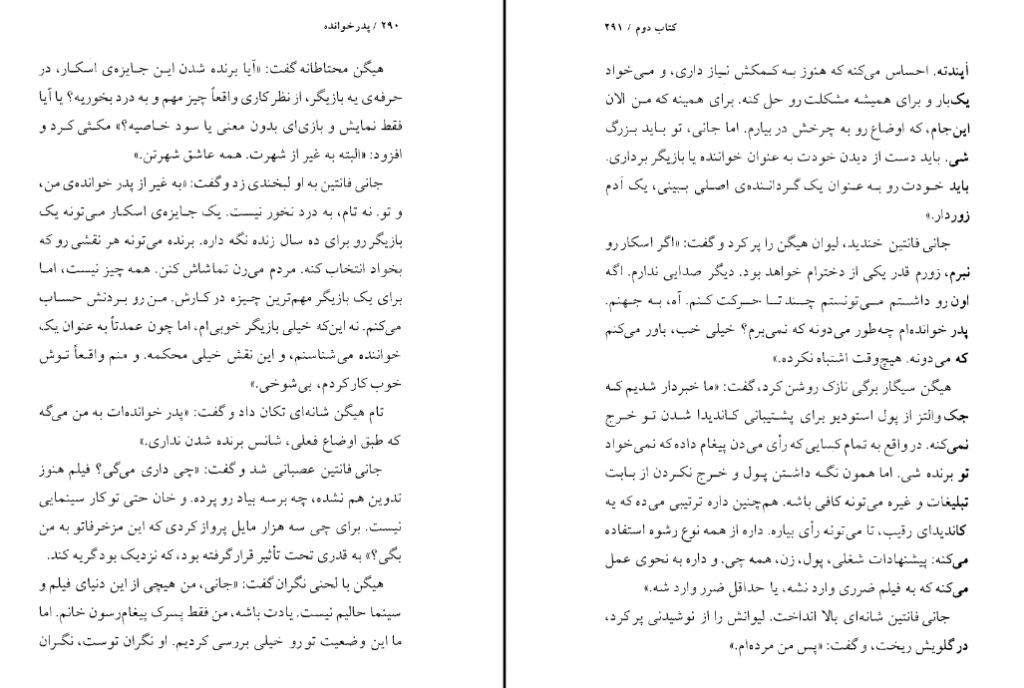 ۲۹۰ / پدرخوانده
هیگن محتاطانه گفت: «آیا برنده شدن این جایزه‌ی اسکار، در
حرفه‌ی یه بازیگر، از نظر کاری واقعاً چیز مهم و به درد بخوریه؟ یا آیا
فقط نمایش و بازی‌ای بدون معنی یا سود خاصیه؟» مکثی کرد و
افزود: «البته به غیر از شهرت. همه عاشق شهرتن.»
جانی فانتین به او لبخندی زد و گفت: «به غیر از پدر خوانده‌ی من،
و تو. نه تام، به درد نخور نیست. یک جایزه‌ی اسکار می‌تونه یک
بازیگر رو برای ده سال زنده نگه داره. برنده می‌تونه هر نقشی رو که
بخواد انتخاب کنه. مردم می‌رن تماشاش کنن. همه چیز نیست، اما
برای یک بازیگر مهم‌ترین چیزه در کارش. من رو بردنش حساب
می‌کنم. نه این‌که خیلی بازیگر خوبی‌ام، اما چون عمدتاً به عنوان یک
خواننده می‌شناسنم، و این نقش خیلی محکمه. و منم واقعاً توش
خوب کار کردم، بی‌شوخی.»
تام هیگن شانه‌ای تکان داد و گفت: «پدر خوانده‌ات به من می‌گه
که طبق اوضاع فعلی، شانس برنده شدن نداری.»
جانی فانتین عصبانی شد و گفت: «چی داری می‌گی؟ فیلم هنوز
تدوین هم نشده، چه برسه بیاد رو پرده. و خان حتی تو کار سینمایی
نیست. برای چی سه هزار مایل پرواز کردی که این مزخرفاتو به من
بگی؟» به قدری تحت تأثیر قرار گرفته بود، که نزدیک بود گریه کند.
هیگن با لحنی نگران گفت: «جانی، من هیچی از این دنیای فیلم و
سینما حالیم نیست. یادت باشه، من فقط پسرک پیغام‌رسون خانم. اما
ما این وضعیت تو رو خیلی بررسی کردیم. او نگران توست، نگران
کتاب دوم / ۲۹۱
آیندته. احساس می‌کنه که هنوز به کمکش نیاز داری، و می‌خواد
یک‌بار و برای همیشه مشکلت رو حل کنه. برای همینه که من الان
این‌جام، که اوضاع رو به چرخش در بیارم. اما جانی، تو باید بزرگ
شی. باید دست از دیدن خودت به عنوان خواننده یا بازیگر برداری.
باید خودت رو به عنوان یک گرداننده‌ی اصلی ببینی، یک آدم
زوردار.»
جانی فانتین خندید، لیوان هیگن را پر کرد و گفت: «اگر اسکار رو
نبرم، زورم قدر یکی از دخترام خواهد بود. دیگر صدایی ندارم. اگه
اون رو داشتم می‌تونستم چند تا حرکت کنم. آه، به جهنم.
پدر خوانده‌ام چه‌طور می‌دونه که نمی‌برم؟ خیلی خب، باور می‌کنم
که می‌دونه. هیچ‌وقت اشتباه نکرده.»
هیگن سیگار برگی نازک روشن کرد، گفت: «ما خبردار شدیم که
جک والتز از پول استودیو برای پشتیبانی کاندیدا شدن تو خرج
نمی‌کنه. در واقع به تمام کسایی که رأی می‌دن پیغام داده که نمی‌خواد
تو برنده شی. اما همون نگه داشتن پول و خرج نکردن از بابت
تبلیغات و غیره می‌تونه کافی باشه. هم‌چنین داره ترتیبی می‌ده که یه
کاندیدای رقیب، تا می‌تونه رأی بیاره. داره از همه نوع رشوه استفاده
می‌کنه: پیشنهادات شغلی، پول، زن، همه چی. و داره به نحوی عمل
می‌کنه که به فیلم ضرری وارد نشه، یا حداقل ضرر وارد شه.»
جانی فانتین شانه‌ای بالا انداخت. لیوانش را از نوشیدنی پر کرد،
در گلویش ریخت، و گفت: «پس من مرده‌ام.»